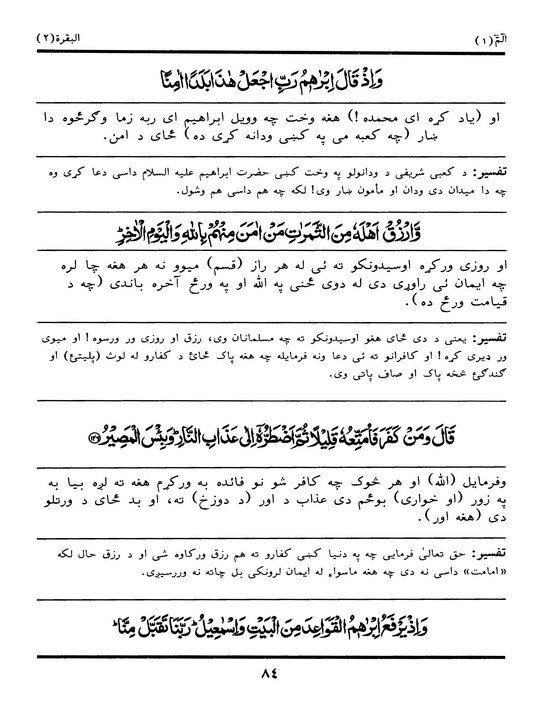 الٓمّٓ (۱)
البقرة (۲)
وَاِذْ قَالَ اِبْرٰهٖمُ رَبِّ اجْعَلْ هٰذَا بَلَدًا اٰمِنًا
او (ياد کړه ای محمده!) هغه وخت چه وويل ابراهيم ای ربه زما وګرځوه دا
ښار (چه کعبه می په کښی ودانه کړی ده) ځای د امن.
تفسير: د کعبی شريفی د ودانولو په وخت کښی حضرت ابراهيم عليه السلام داسی دعا کړی وه
چه دا ميدان دی ودان او مأمون ښار وی! لکه چه هم داسی هم وشول.
وَّارْزُقْ اَهْلَهٗ مِنَ الثَّمَرٰتِ مَنْ اٰمَنَ مِنْهُمْ بِاللّٰهِ وَالْيَوْمِ الْاٰخِرِ ؕ
او روزی ورکړه اوسيدونکو ته ئی له هر راز (قسم) ميوو نه هر هغه چا لره
چه ايمان ئی راوړی دی له دوی ځنی په الله او په ورځ آخره باندی (چه د
قيامت ورځ ده).
تفسير: يعنی د دی ځای هغو اوسيدونکو ته چه مسلمانان وی، رزق او روزی ور ورسوه! او ميوی
ور ډيری کړه! او کافرانو ته ئی دعا ونه فرمايله چه هغه پاک ځائ د کفارو له لوث (پليتئ) او
ګندګئ څخه پاک او صاف پاتی وی.
قَالَ وَمَنْ كَفَرَ فَاُمَتِّعُهٗ قَلِيْلًا ثُمَّ اَضْطَرُّهٗۤ اِلٰى عَذَابِ النَّارِ ؕ وَبِئْسَ الْمَصِيْرُ ﴿۱۲۶﴾
وفرمايل (الله) او هر څوک چه کافر شو نو فائده به ورکړم هغه ته لږه بيا به
په زور (او خواری) بوځم دی عذاب د اور (د دوزخ) ته، او بد ځای د ورتلو
دی (هغه اور).
تفسير: حق تعالیٰ فرمايی چه په دنيا کښی کفارو ته هم رزق ورکاوه شی او د رزق حال لکه
«امامت» داسی نه دی چه هغه ماسواء له ايمان لرونکی بل چاته نه وررسيږی.
وَاِذْ يَرْفَعُ اِبْرٰهٖمُ الْقَوَاعِدَ مِنَ الْبَيْتِ وَاِسْمٰعِيْلُ ؕ رَبَّنَا تَقَبَّلْ مِنَّا ؕ
۸٤